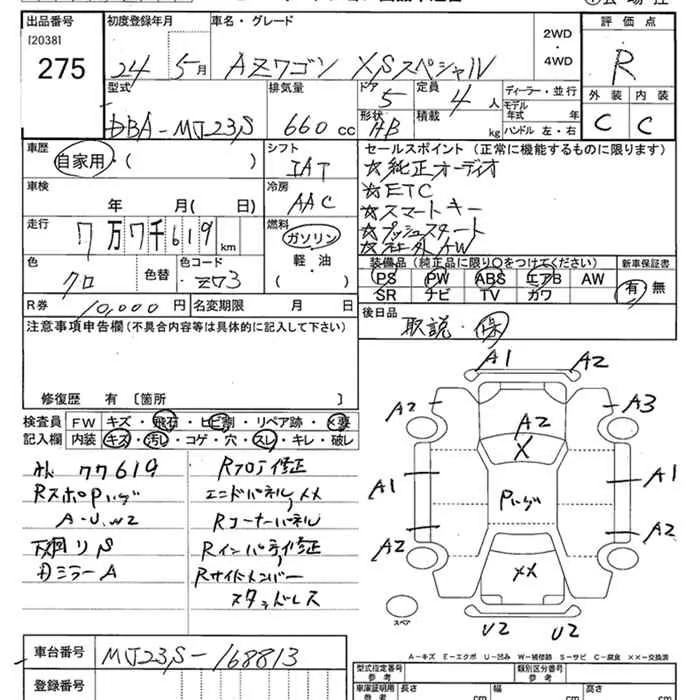 出品番号 初度登録年月 車名・グレード 2WD・4WD 評価点
120381
275 24 5月 AZワゴン XSスペシャル R
型式 排気量 ドア 5 定員 4人 ディーラー・並行 外装 内装
DBA-MJ23S 660cc 形状 HB 積載 kg モデル年式 年 C C
ハンドル 左・右
車歴 シフト セールスポイント (正常に機能するものに限ります)
自家用・( ) IAT ☆純正オーディオ
車検 冷房 ☆ETC
年 月( 日) AAC ☆スマートキー
走行 燃料 ☆プッシュスタート
7万7千619km ガソリン ☆社外AW
色 色替 色コード 軽・油 装備品 (純正品に限り○をつけてください) 新車保証書
クロ ZJ3 ( ) PS PW ABS エアB AW 有 無
SR ナビ TV カワ
R券 10,000円 名変期限 月 日 後日品
取説・保
注意事項申告欄 (不具合内容等は具体的に記入して下さい)
修復歴 有 〔箇所 〕
検査員 FW キズ・飛石・ヒビ割・リペア跡・×要
記入欄 内装 キズ・汚レ・コゲ・穴・スレ・キレ・破レ
77619 Rフロア修正
エンドパネルXX
A・U.W2 Rコーナーパネル
下廻りS Rインパネ修正
ミラーA Rサイドメンバー
スタッドレス
A1 A2
A2 A2 A3
X
A1 Pハゲ A1
A2 XX A2
スペア U2 U2
A=キズ E=エクボ U=凹み W=補修跡 S=サビ C=腐食 XX=交換済
車台番号 MJ23S-168813
登録番号
型式指定番号 参考 類別区分番号 参考
車庫証明用 参考 長さ cm 幅 cm 高さ cm